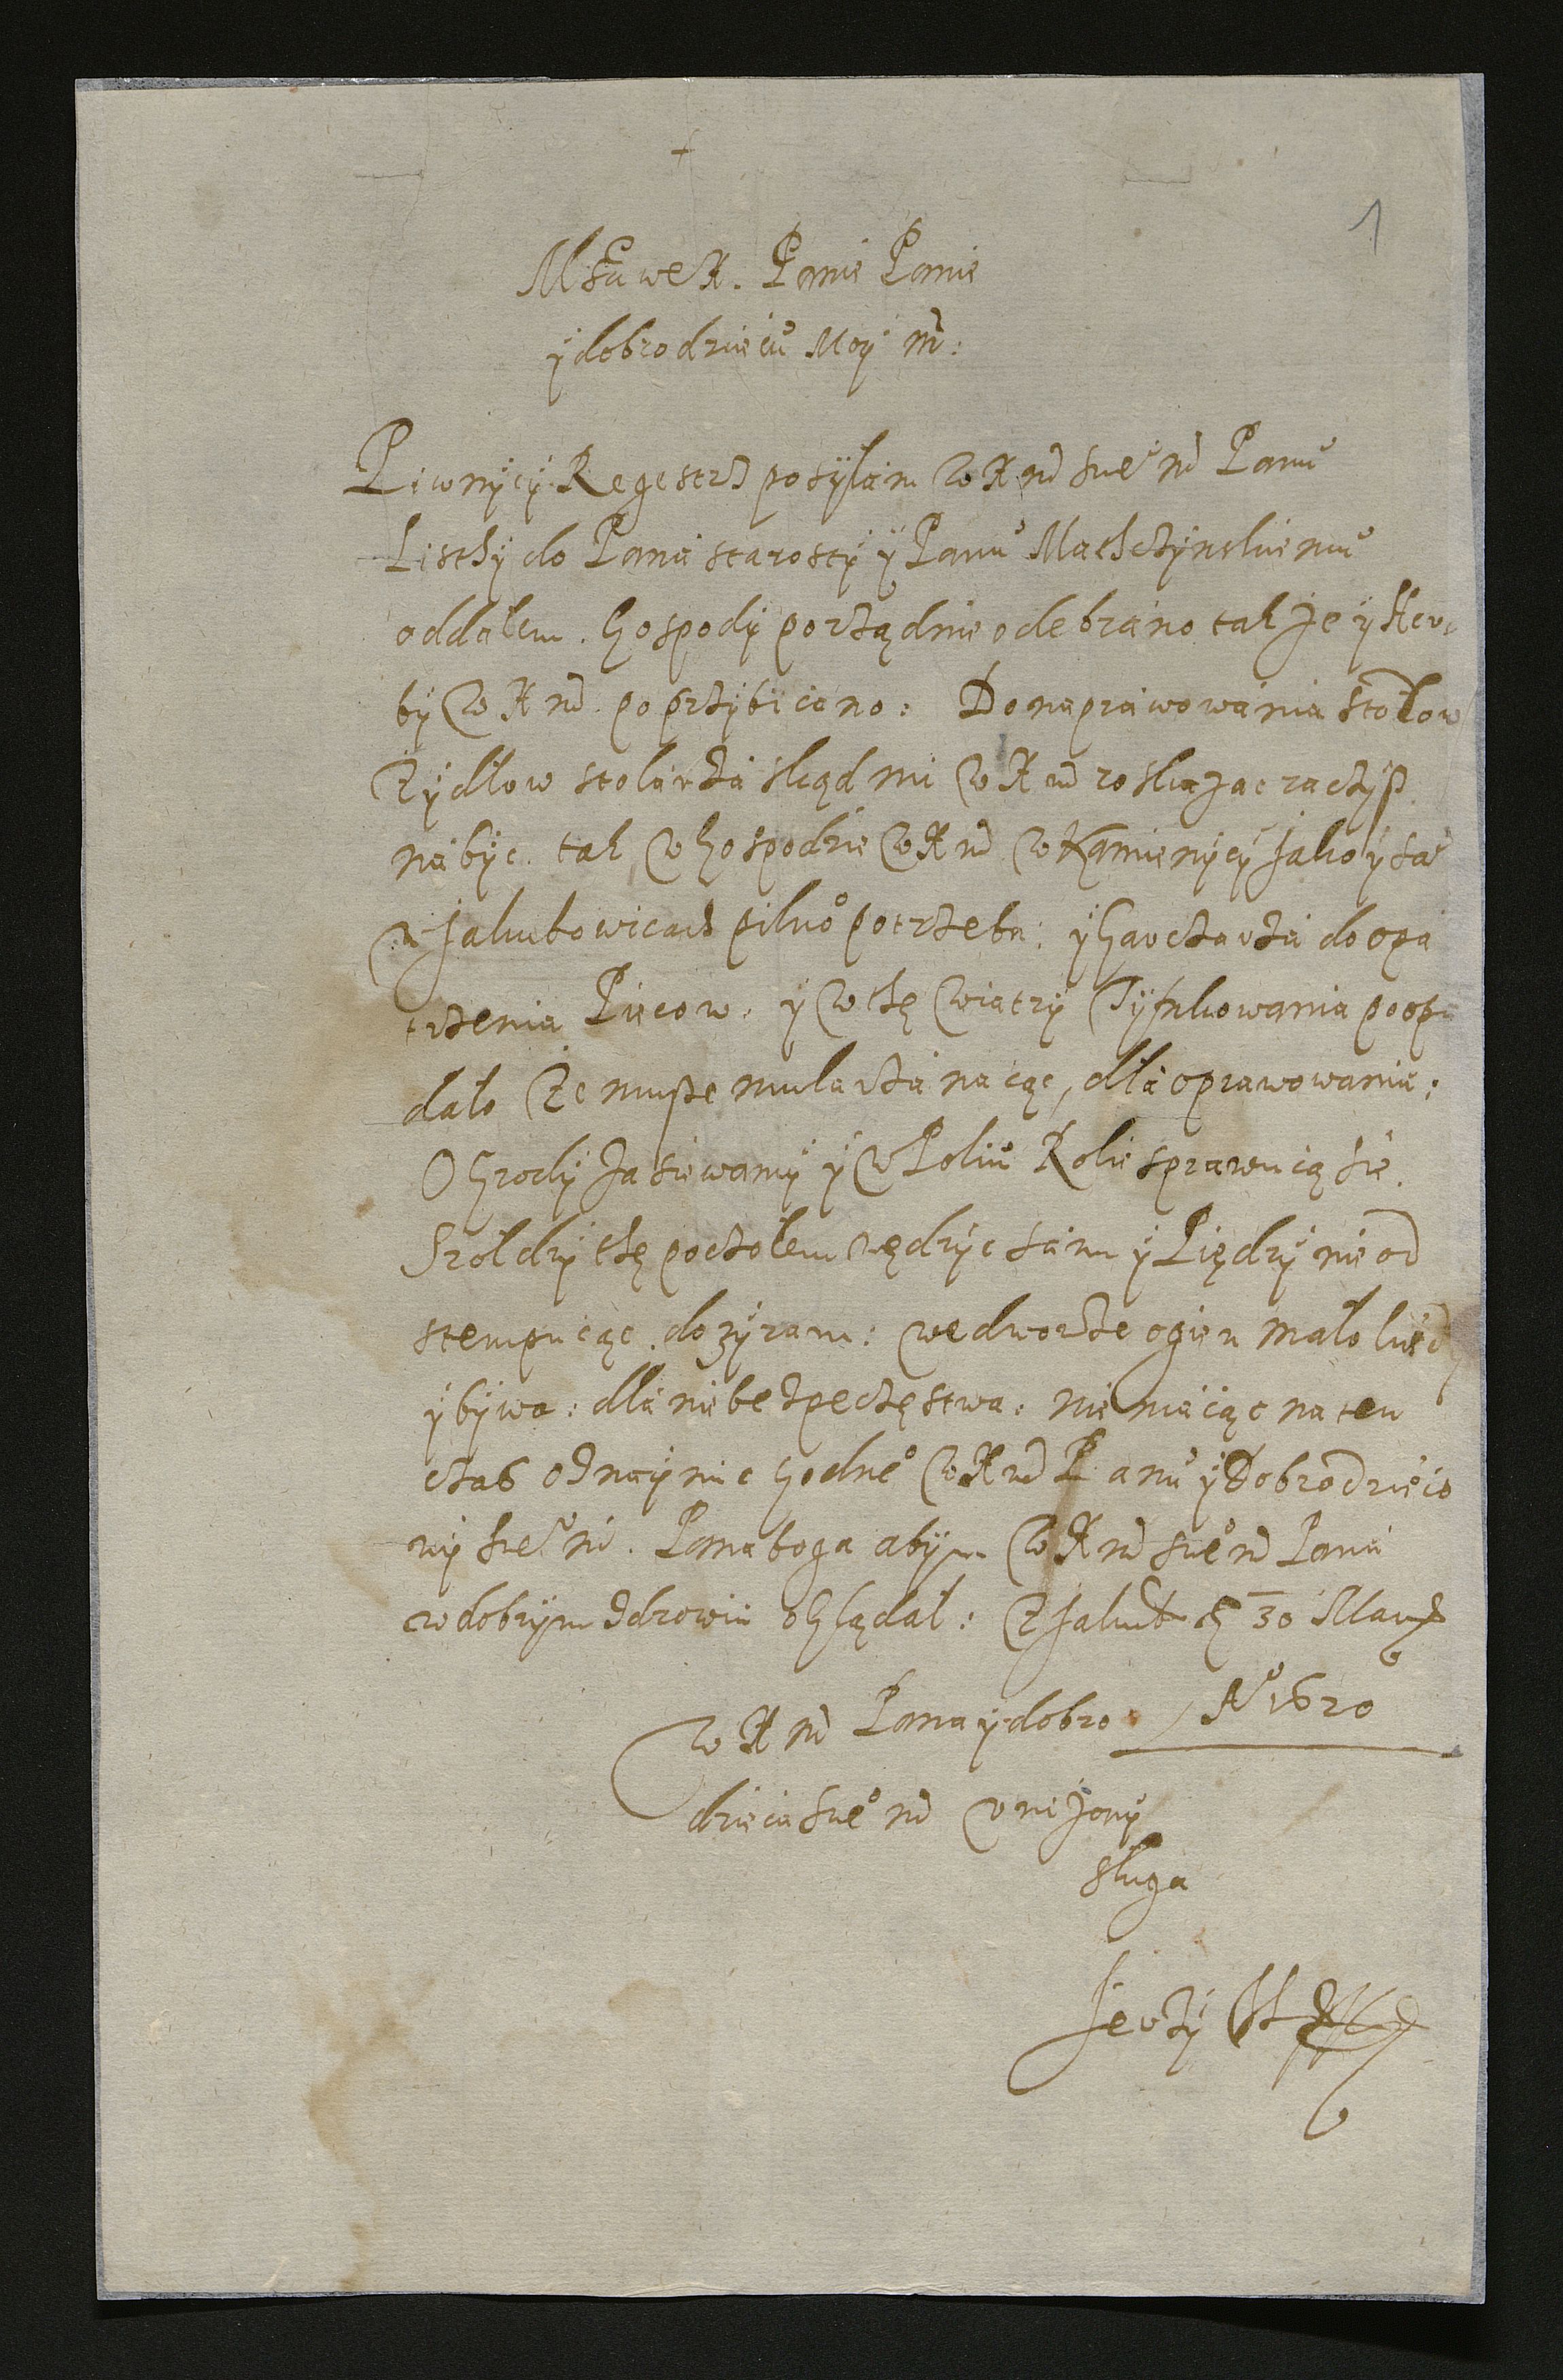 1
M. Xiąże. Panie Panie
y dobrodzieiu Moy m:
Piwnycy Regestrz posylam WXM sweo m Panu
Listhy do Pana starosty y Panu
oddalem. Gospody porządnie odebrano takze y Her
by WXM poprzybiiano: Do naprawowania stolow
Zydlow stolarza skąd mi WXM roskazac raczysz
nabyc. tak w Gospodzie WXM w Kamienycy jako y ta
w Jakubowicach pilno potrzeba: y Garczarza do opa
trzenia Piecow. y w thę wiatry Tynkowania poopa
dalo Ze musze mularza naiąc, dla oprawowania:
Ogrody Zasiewamy y w Poliu Role sprawuią sie.
Srol dry thę poczolem wędzyc sam y Piędzy nie od
stempuiąc. dozyram: we dworze ogien malo kiedy
y bywa: dla niebezpeczęstwa: nie maiąc na ten
czas oznaymic Godneo WXM Panu y Dobrodzieio
wy sweo m. Pana boga abym WXM sweo m Pana
w dobrym Zdrowiu oglądal: Z Jakub 30 Mar
Ao 1620
WXM Pana y dobro
dzieia sweo m unizony
sluga
Jerzy